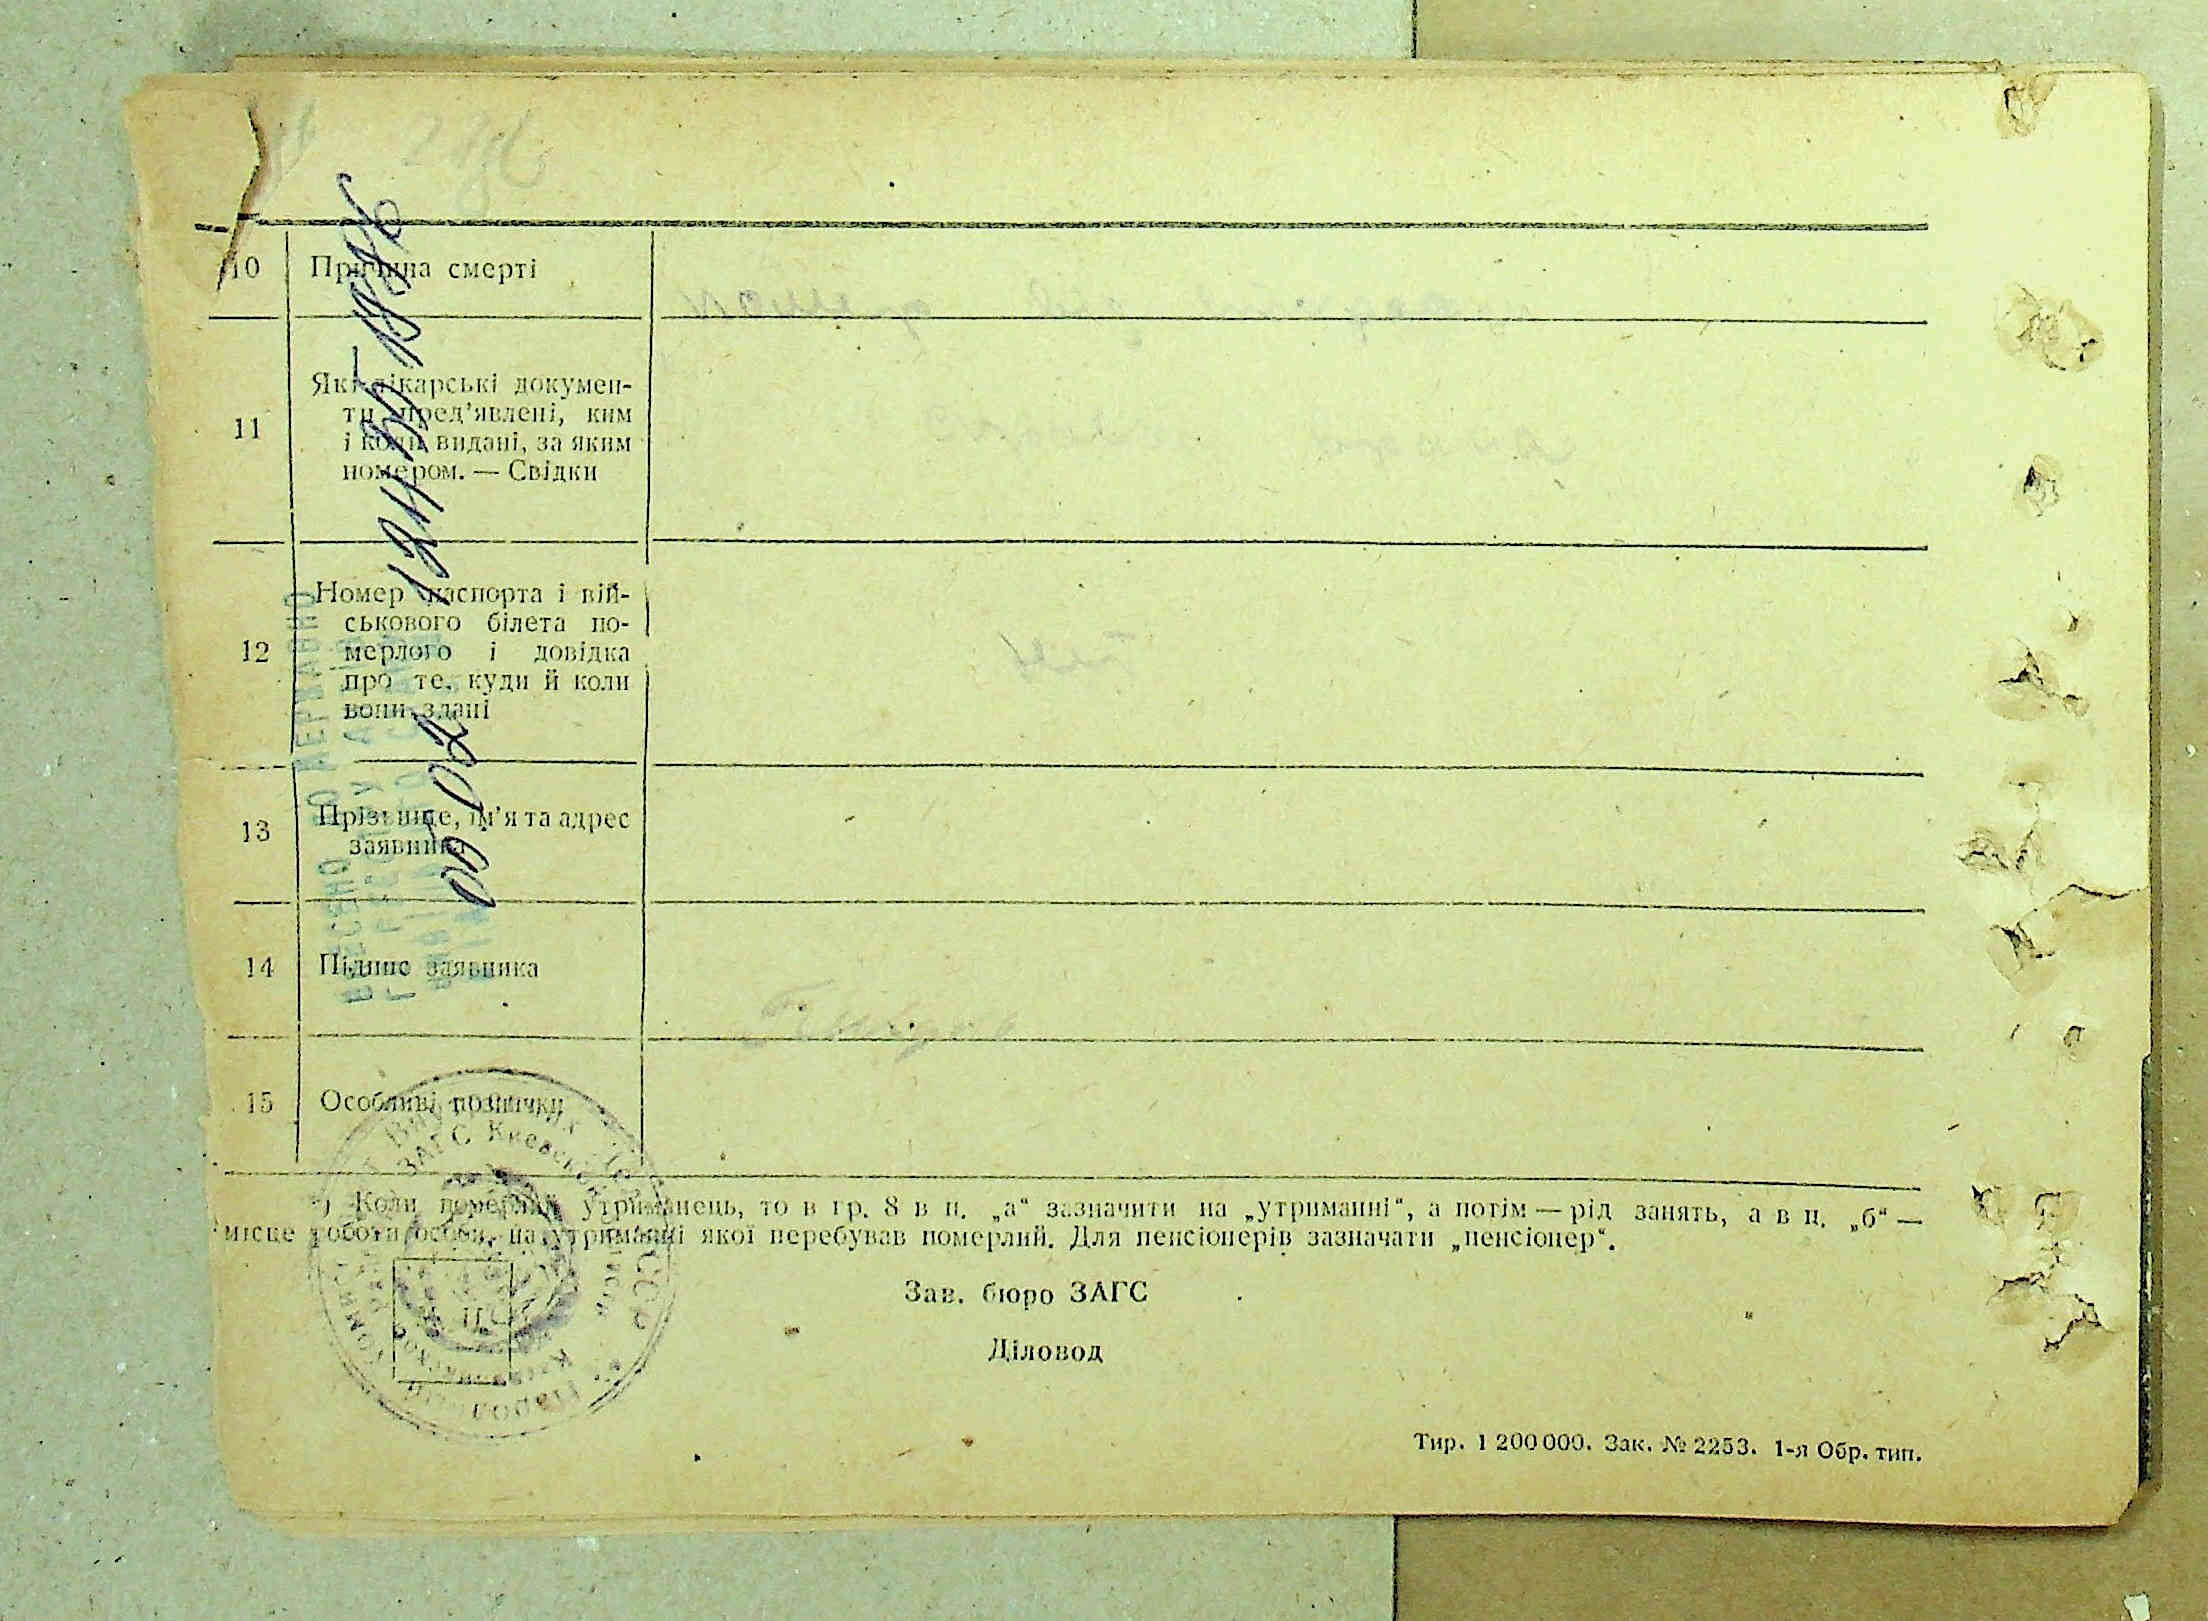 10 Причина смерті
11 Які лікарські докумен-
ти пред'явлені, ким
і коли видані, за яким
номером. — Свідки
12 Номер паспорта і вій-
ськового білета по-
мерлого і довідка
про те, куди й коли
вони здані
13 Прізвище, ім'я та адрес
заявника
14 Підпис заявника
15 Особливі позначки
*) Коли померлий утриманець, то в гр. 8 в п. „а“ зазначити на „утриманні“, а потім — рід занять, а в п. „б“ —
місце роботи особи, на утриманні якої перебував померлий. Для пенсіонерів зазначати „пенсіонер“.
Зав. бюро ЗАГС
Діловод
Тир. 1 200 000. Зак. № 2253. 1-я Обр. тип.
ЗАГС